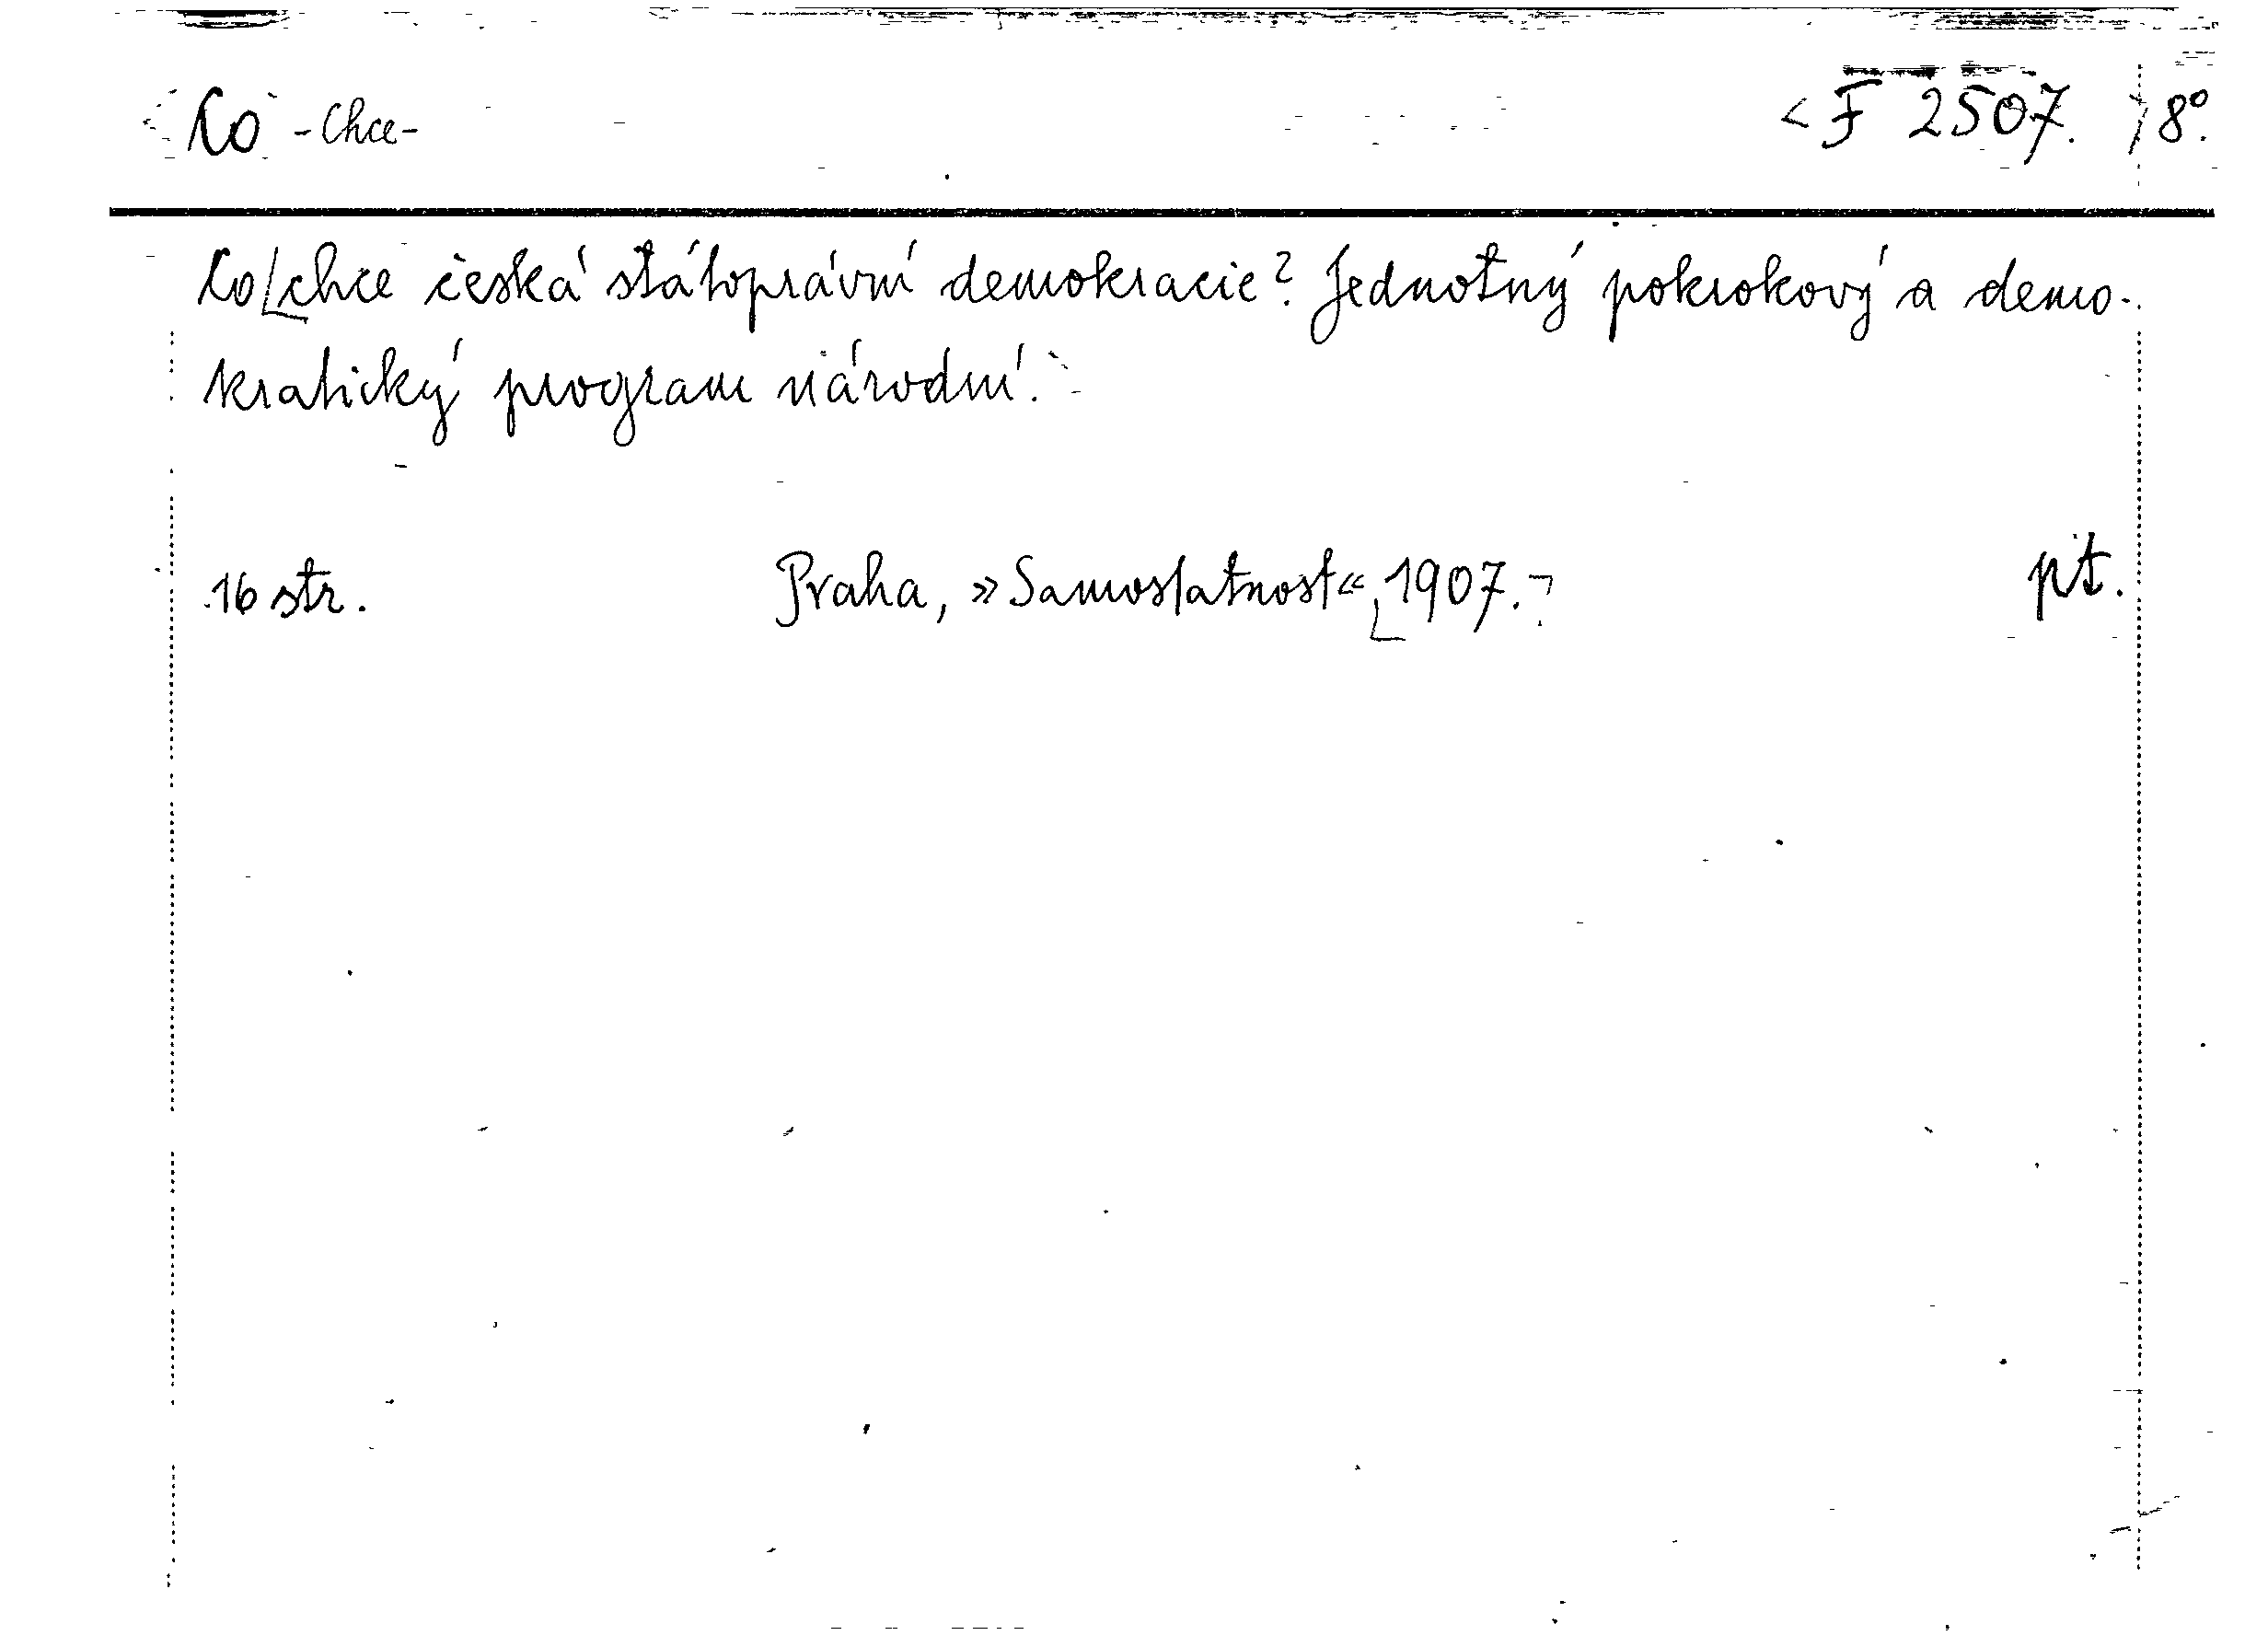 Co -Chce- F 2507. 8°.
Co chce česká státoprávní demokracie? Jednotný pokrokový a demo-
kratický program národní.
16 str. Praha, »Samostatnost« 1907. pt.